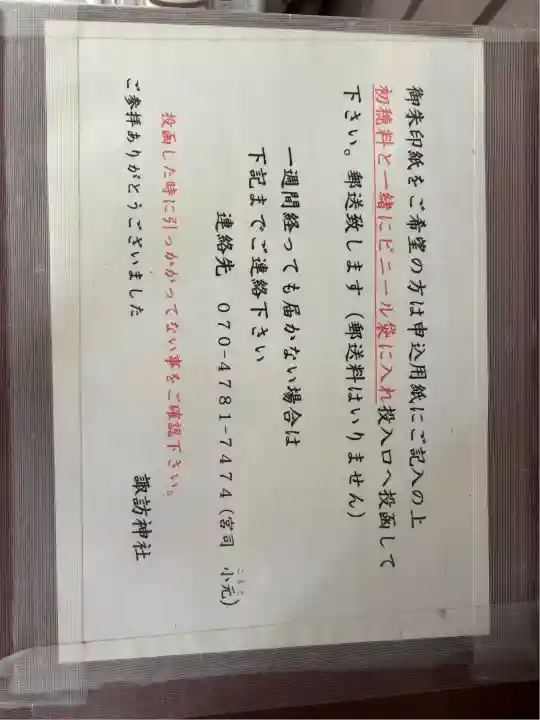 御朱印紙をご希望の方は申込用紙にご記入の上
初穂料と一緒にビニール袋に入れ投入口へ投函して
下さい。郵送致します（郵送料はいりません）
一週間経っても届かない場合は
下記までご連絡下さい
連絡先　070-4781-7474（宮司　小元）
こもと
投函した時に引っかかってない事をご確認下さい。
ご参拝ありがとうございました
諏訪神社